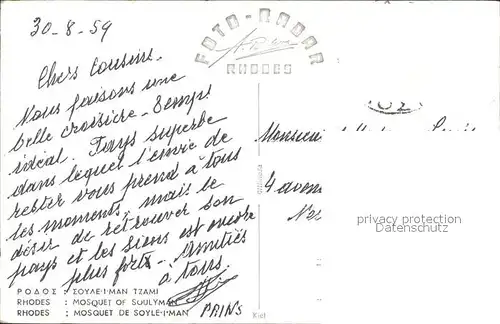 30-8-59
FOTO-RADAR
RHODES
Chers Cousins.
Nous faisons une
belle croisière - Temps
idéal. Pays superbe
dans lequel l'envie de
rester vous prend à tous
les moments, mais le
désir de retrouver son
pays et les siens est encore
plus fort - Amitiés
à tous.
Monsieur
4 aven
privacy protection
Datenschutz
ΡΟΔΟΣ : ΣΟΥΛΕ·Ι·ΜΑΝ ΤΖΑΜΙ
RHODES : MOSQUET OF SULYMAN
RHODES : MOSQUET DE SOYLE·I·MAN
PRINS